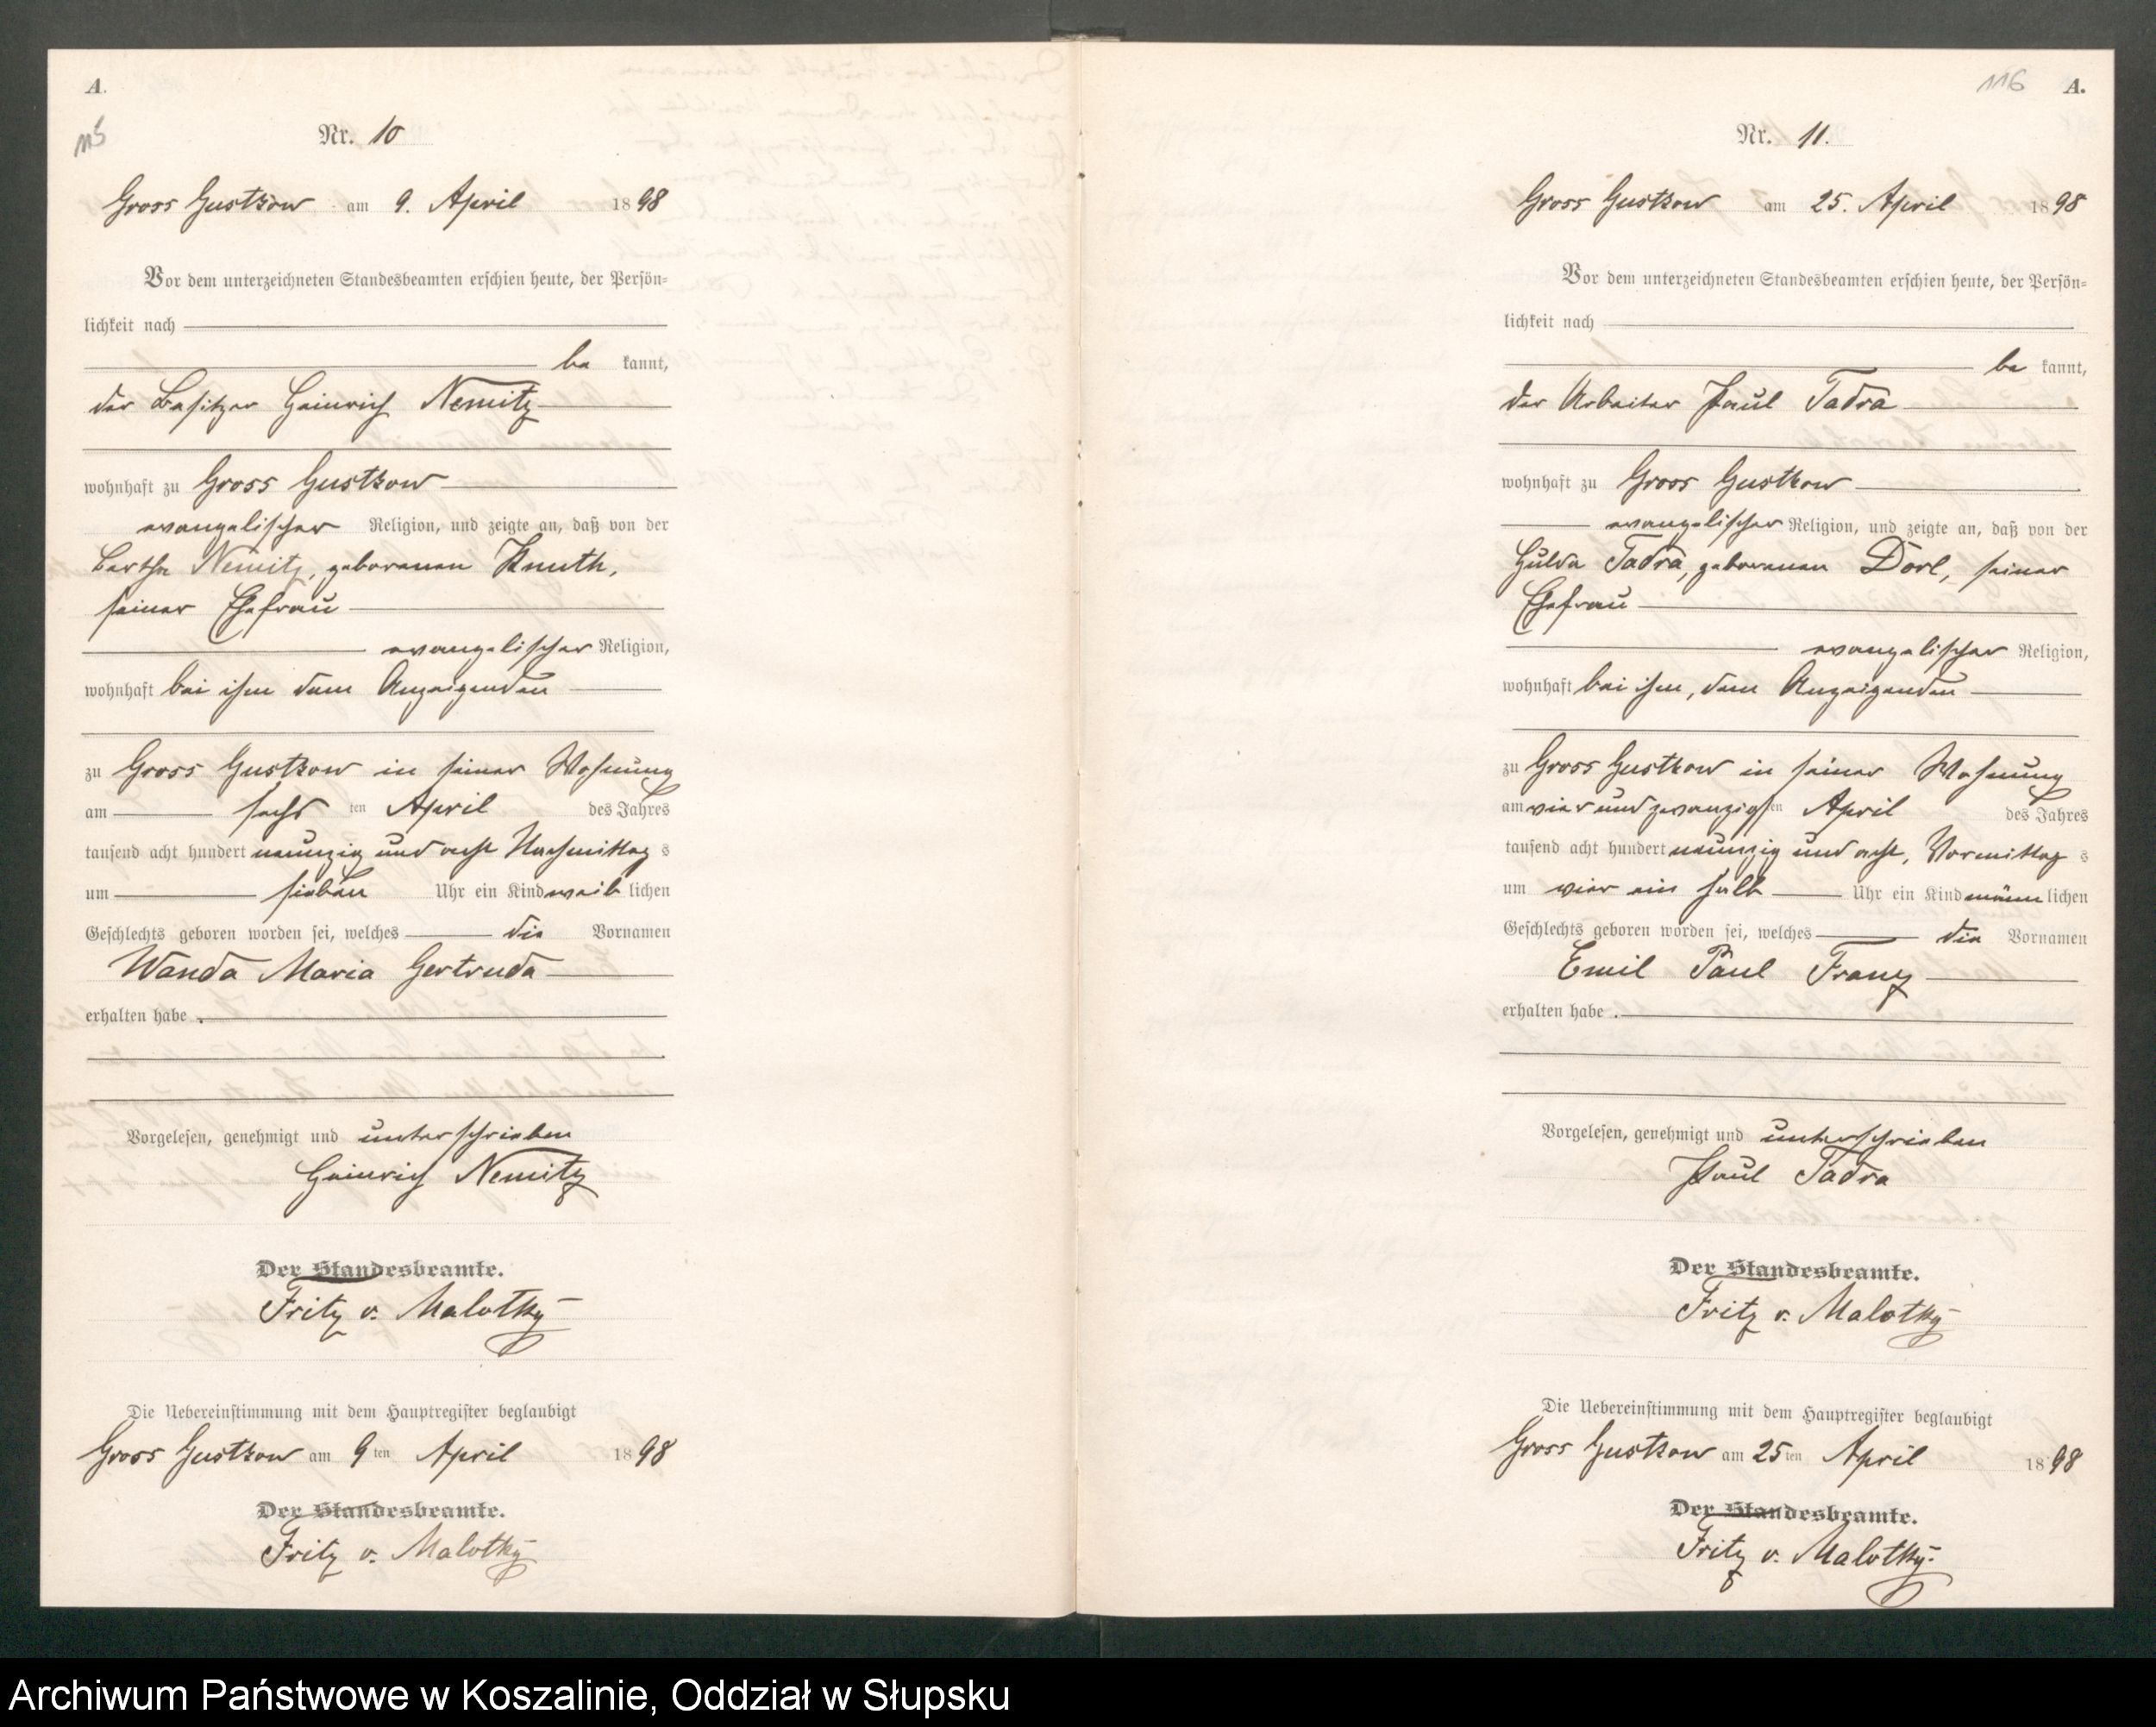 A.
115
Nr. 10
Gross Gustkow am 9. April 1898
Vor dem unterzeichneten Standesbeamten erschien heute, der Persön-
lichkeit nach
be kannt,
der Besitzer Heinrich Nemitz
wohnhaft zu Gross Gustkow
evangelischer Religion, und zeigte an, daß von der
Bertha Nemitz, geborenen Knuth,
seiner Ehefrau
evangelischer Religion,
wohnhaft bei ihm dem Anzeigenden
zu Gross Gustkow in seiner Wohnung
am sechs ten April des Jahres
tausend acht hundert neunzig und acht Nachmittag s
um sieben Uhr ein Kind weib lichen
Geschlechts geboren worden sei, welches die Vornamen
Wanda Maria Gertruda
erhalten habe.
Vorgelesen, genehmigt und unterschrieben
Heinrich Nemitz
Der Standesbeamte.
Fritz v. Malotky
Die Uebereinstimmung mit dem Hauptregister beglaubigt
Gross Gustkow am 9ten April 1898
Der Standesbeamte.
Fritz v. Malotky
116 A.
Nr. 11.
Gross Gustkow am 25. April 1898
Vor dem unterzeichneten Standesbeamten erschien heute, der Persön-
lichkeit nach
be kannt,
der Arbeiter Paul Tadra
wohnhaft zu Gross Gustkow
evangelischer Religion, und zeigte an, daß von der
Hulda Tadra, geborenen Dorl, seiner
Ehefrau
evangelischer Religion,
wohnhaft bei ihm, dem Anzeigenden
zu Gross Gustkow in seiner Wohnung
am vier und zwanzigsten April des Jahres
tausend acht hundert neunzig und acht, Vormittag s
um vier ein halb Uhr ein Kind männ lichen
Geschlechts geboren worden sei, welches die Vornamen
Emil Paul Franz
erhalten habe.
Vorgelesen, genehmigt und unterschrieben
Paul Tadra
Der Standesbeamte.
Fritz v. Malotky
Die Uebereinstimmung mit dem Hauptregister beglaubigt
Gross Gustkow am 25ten April 1898
Der Standesbeamte.
Fritz v. Malotky.
Archiwum Państwowe w Koszalinie, Oddział w Słupsku